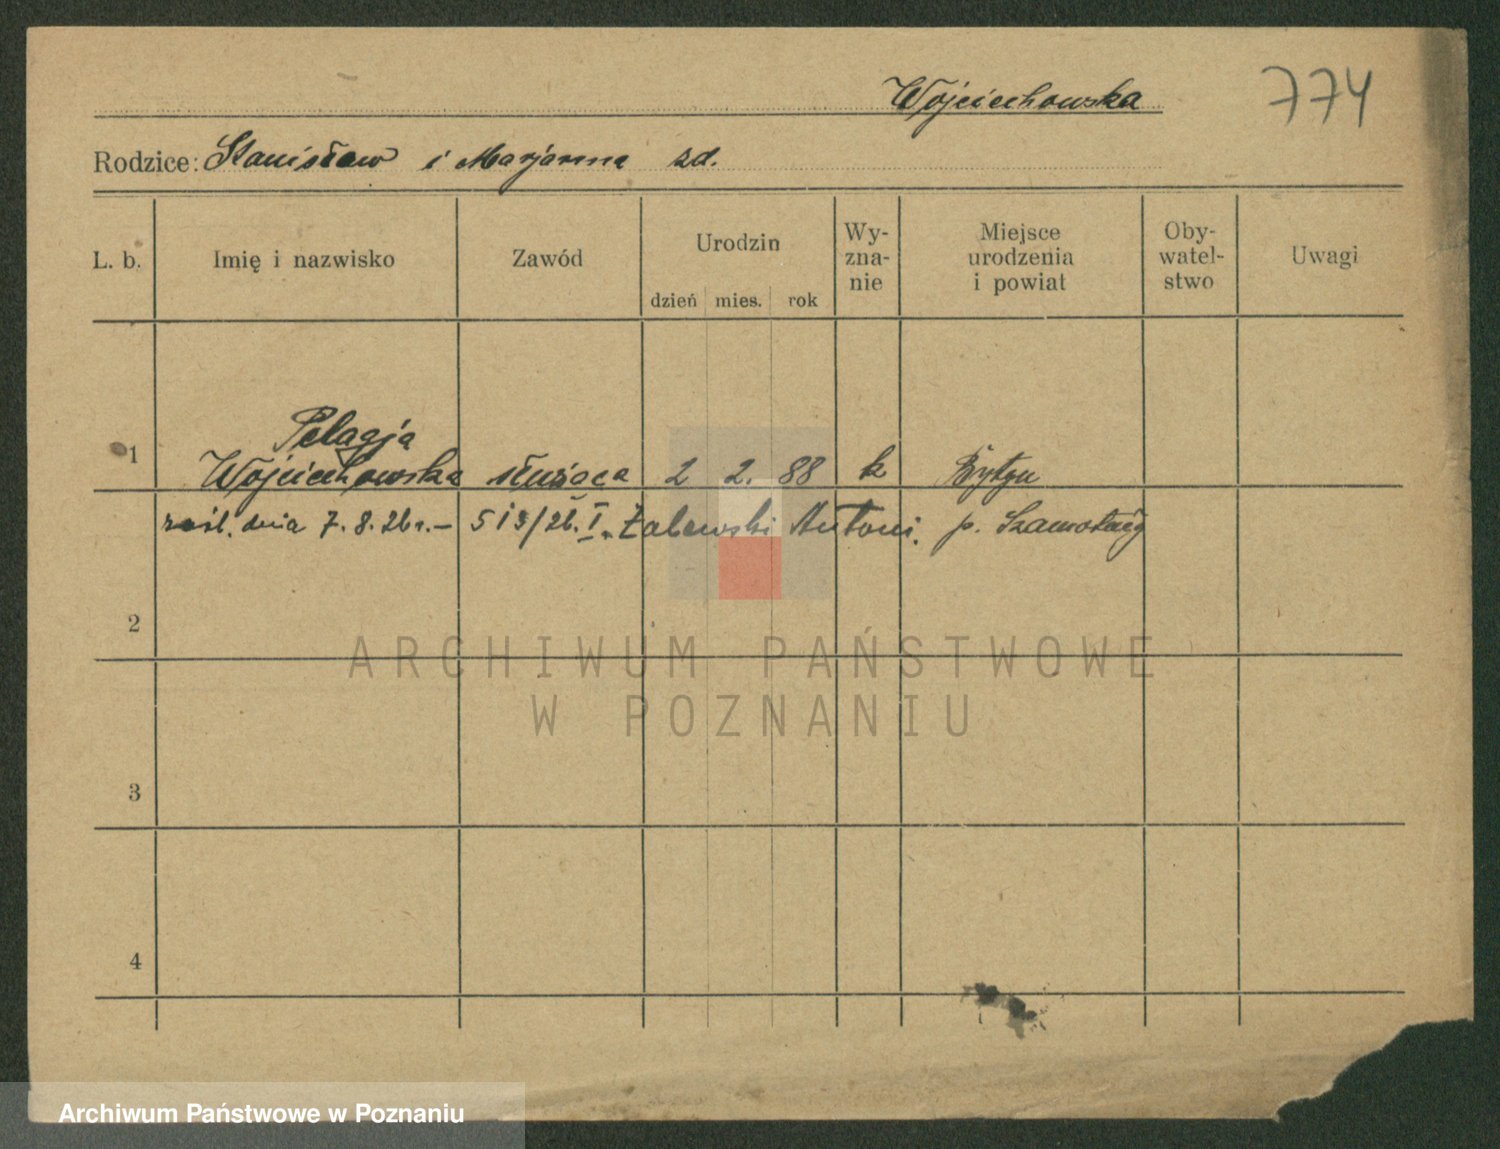 Wojciechowska
774
Rodzice: Stanisław i Marjanna zd.
L. b.
Imię i nazwisko
Zawód
Urodzin
dzień mies. rok
Wy-
zna-
nie
Miejsce
urodzenia
i powiat
Oby-
watel-
stwo
Uwagi
Pelagja
1 Wojciechowska służąca 2 2. 88 k Bytyń
zaśl. dnia 7. 8. 26 r. – 513/26. I. Żalewski Antoni. p. Szamotuły
2
3
4
ARCHIWUM PAŃSTWOWE
W POZNANIU
Archiwum Państwowe w Poznaniu